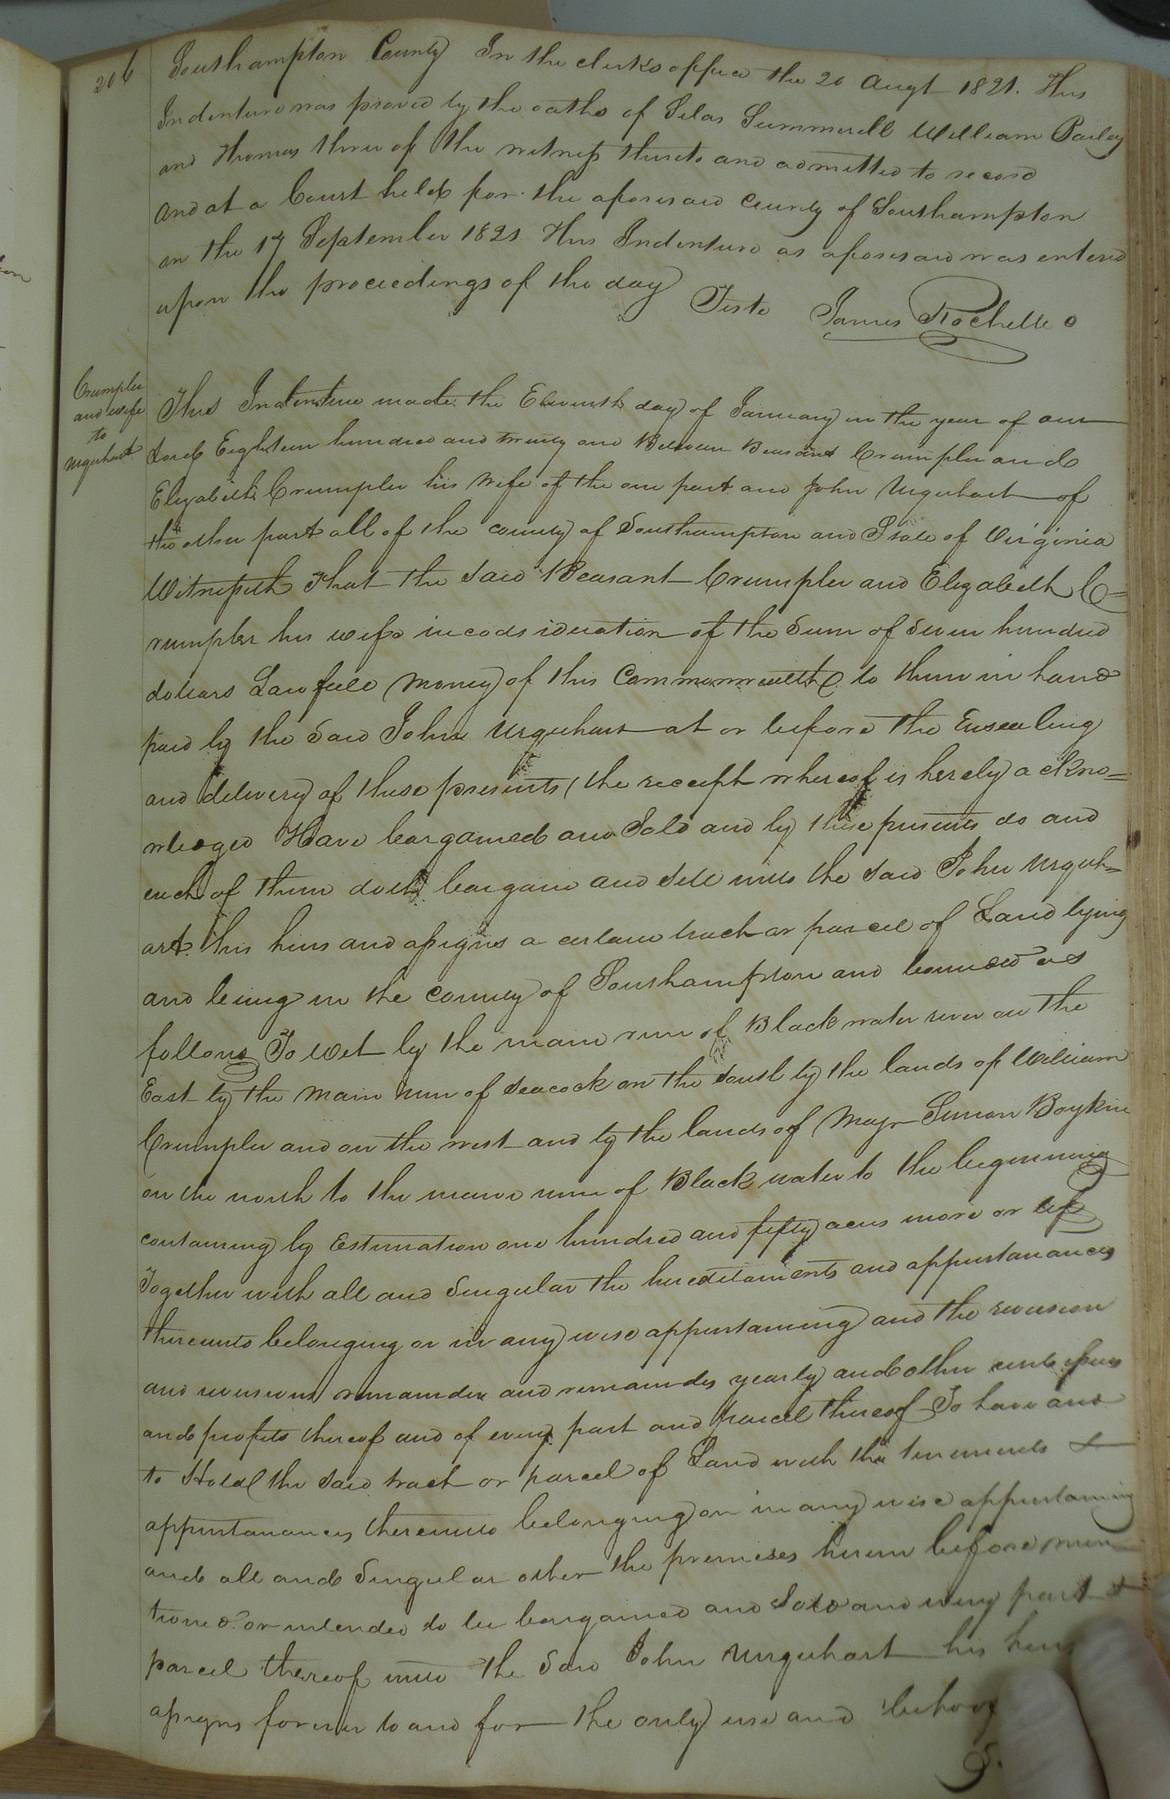 206
Southampton County In the clerks office the 20 Augt 1821. This
Indenture was proved by the oaths of Silas Summerell William Bailey
and Thomas three of the witness thereto and admitted to record
And at a Court held for the aforesaid County of Southampton
on the 17 September 1821 This Indenture as aforesaid was entered
upon the proceedings of the day
Teste James Rochelle
Crumpler
and wife
to
Urquhart
This Indenture made the Eleventh day of January in the year of our
Lord Eighteen hundred and twenty one Between Beasant Crumpler and
Elizabeth Crumpler his wife of the one part and John Urquhart of
the other part all of the county of Southampton and State of Virginia
Witnesseth That the said Beasant Crumpler and Elizabeth C=
rumpler his wife in consideration of the Sum of Seven hundred
dollars Lawfull Money of this Commonwealth to them in hand
paid by the said John Urquhart at or before the Ensealing
and delivery of these presents (the receipt whereof is hereby ackno=
wledged Have bargained and Sold and by these presents do and
each of them doth bargain and sell unto the said John Urquh=
art his heirs and assigns a certain tract or parcel of Land lying
and being in the county of Southampton and bounded as
follows To Wit by the main run of Black water river on the
East by the Main run of Seacock on the South by the lands of William
Crumpler and on the west and by the lands of Majr Simon Boykin
on the north to the main run of Black water to the beginning
containing by Estimation one hundred and fifty acres more or less
Together with all and Singular the hereditaments and appurtanances
thereunto belonging or in any wise appurtaining and the revercion
and revercions remainder and remainders yearly and other rents issues
and profits thereof and of every part and parcel thereof To have and
to Hold the said tract or parcel of Land with the tenements &
appurtanances thereunto belonging or in any wise appurtaining
and all and Singular other the premises herein before men
tioned or intended to be bargained and Sold and every part &
parcel thereof unto the said John Urquhart his heirs
assigns forever to and for the only use and behoof